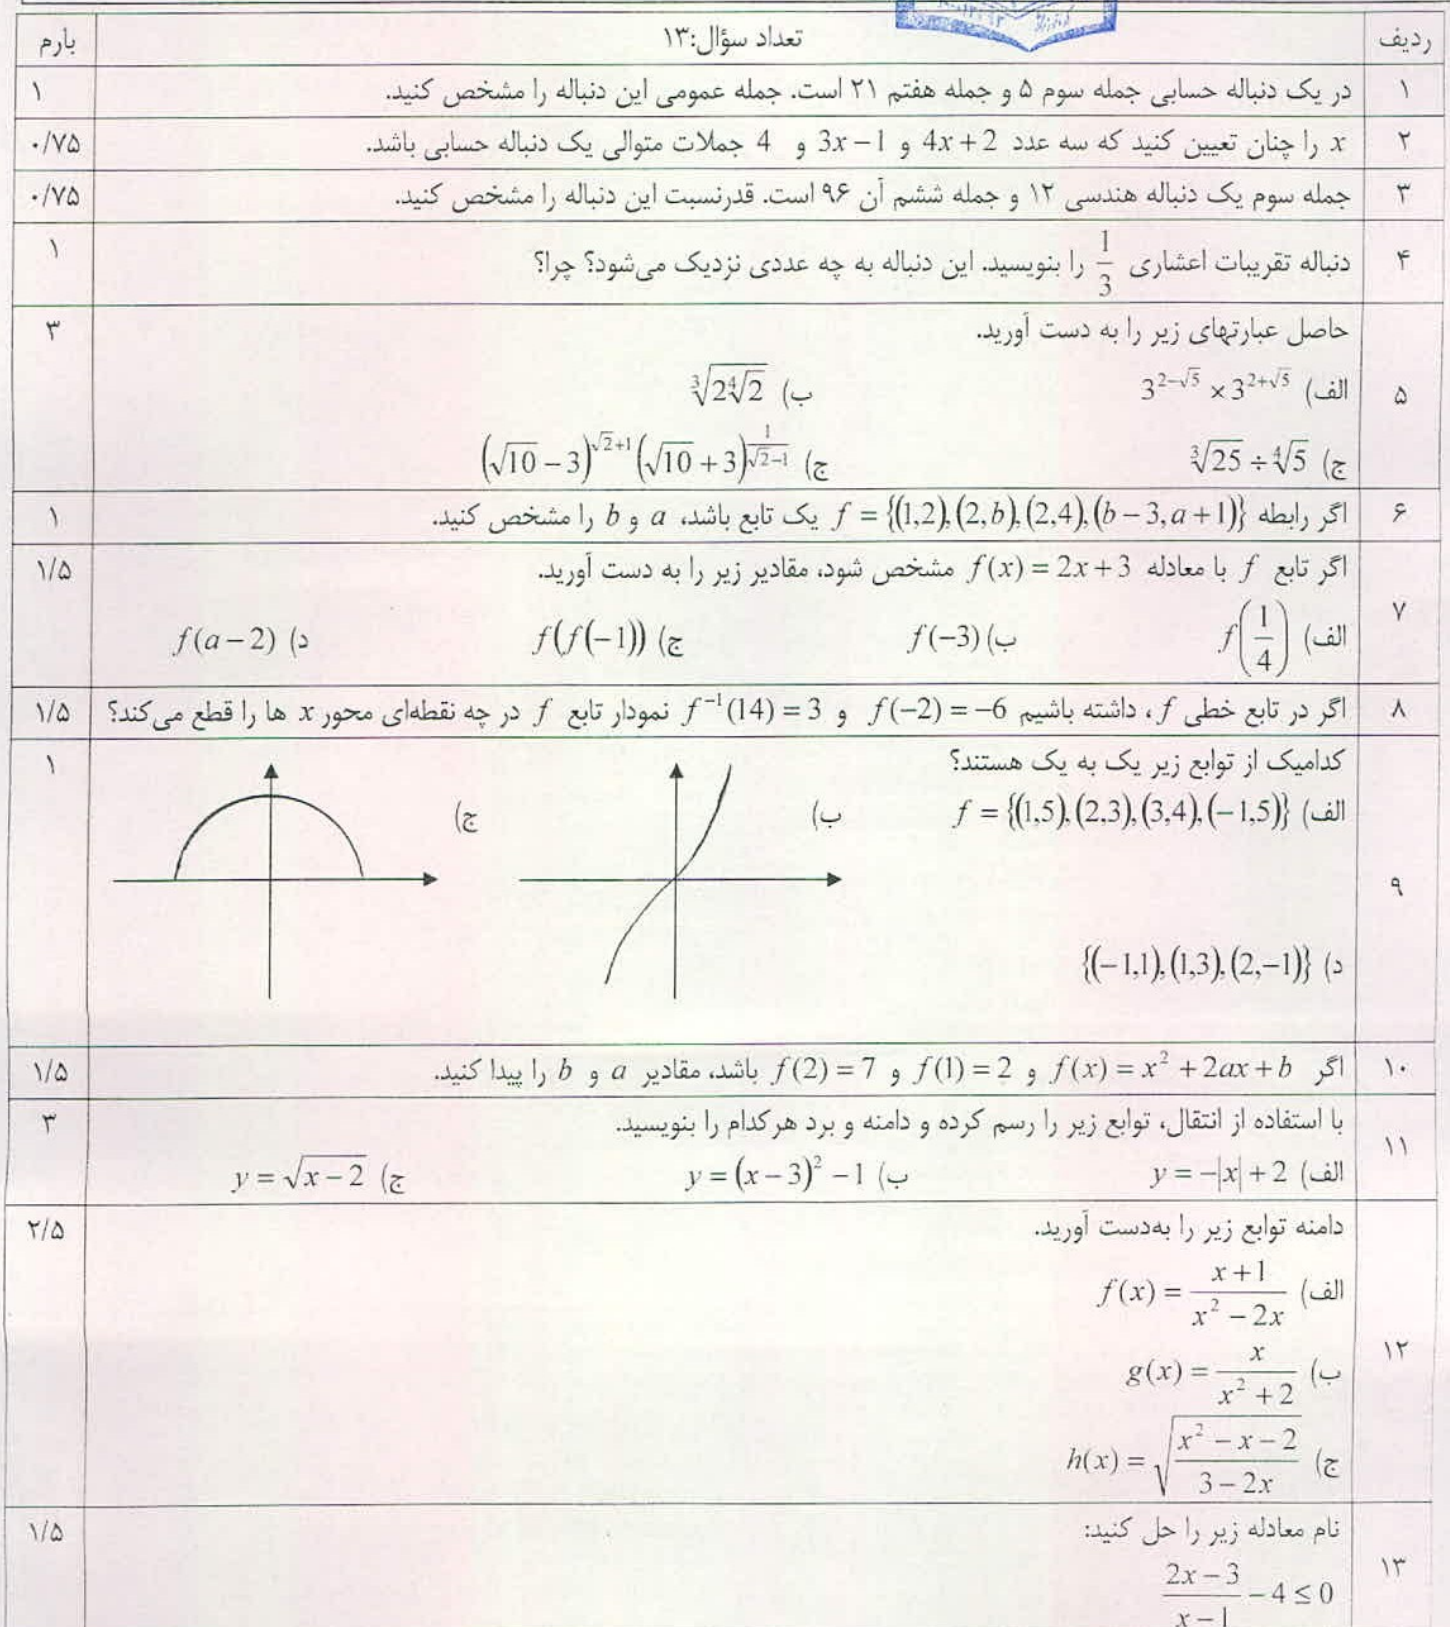 ردیف تعداد سؤال:۱۳ بارم
۱ در یک دنباله حسابی جمله سوم ۵ و جمله هفتم ۲۱ است. جمله عمومی این دنباله را مشخص کنید. ۱
۲ x را چنان تعیین کنید که سه عدد 4x+2 و 3x−1 و 4 جملات متوالی یک دنباله حسابی باشد. ۰/۷۵
۳ جمله سوم یک دنباله هندسی ۱۲ و جمله ششم آن ۹۶ است. قدرنسبت این دنباله را مشخص کنید. ۰/۷۵
۴ دنباله تقریبات اعشاری 1/3 را بنویسید. این دنباله به چه عددی نزدیک می‌شود؟ چرا؟ ۱
حاصل عبارتهای زیر را به دست آورید. ۳
۵ الف) 3^{2−√5} × 3^{2+√5} ب) ∛(2∜2)
ج) ∛25 ÷ ∜5 ج) (√10 − 3)^{√2+1} (√10 + 3)^{1/(√2−1)}
۶ اگر رابطه f = {(1,2),(2,b),(2,4),(b−3,a+1)} یک تابع باشد، a و b را مشخص کنید. ۱
اگر تابع f با معادله f(x) = 2x+3 مشخص شود، مقادیر زیر را به دست آورید. ۱/۵
۷ الف) f(1/4) ب) f(−3) ج) f(f(−1)) د) f(a−2)
۸ اگر در تابع خطی f، داشته باشیم f(−2) = −6 و f⁻¹(14) = 3 نمودار تابع f در چه نقطه‌ای محور x ها را قطع می‌کند؟ ۱/۵
کدامیک از توابع زیر یک به یک هستند؟ ۱
الف) f = {(1,5),(2,3),(3,4),(−1,5)} ب) ج)
۹
د) {(−1,1),(1,3),(2,−1)}
۱۰ اگر f(x) = x² + 2ax + b و f(1) = 2 و f(2) = 7 باشد، مقادیر a و b را پیدا کنید. ۱/۵
با استفاده از انتقال، توابع زیر را رسم کرده و دامنه و برد هرکدام را بنویسید. ۳
۱۱ الف) y = −|x| + 2 ب) y = (x−3)² − 1 ج) y = √(x−2)
دامنه توابع زیر را به‌دست آورید. ۲/۵
الف) f(x) = (x+1)/(x² − 2x)
۱۲ ب) g(x) = x/(x² + 2)
ج) h(x) = √((x² − x − 2)/(3 − 2x))
نام معادله زیر را حل کنید: ۱/۵
۱۳ (2x−3)/(x−1) − 4 ≤ 0